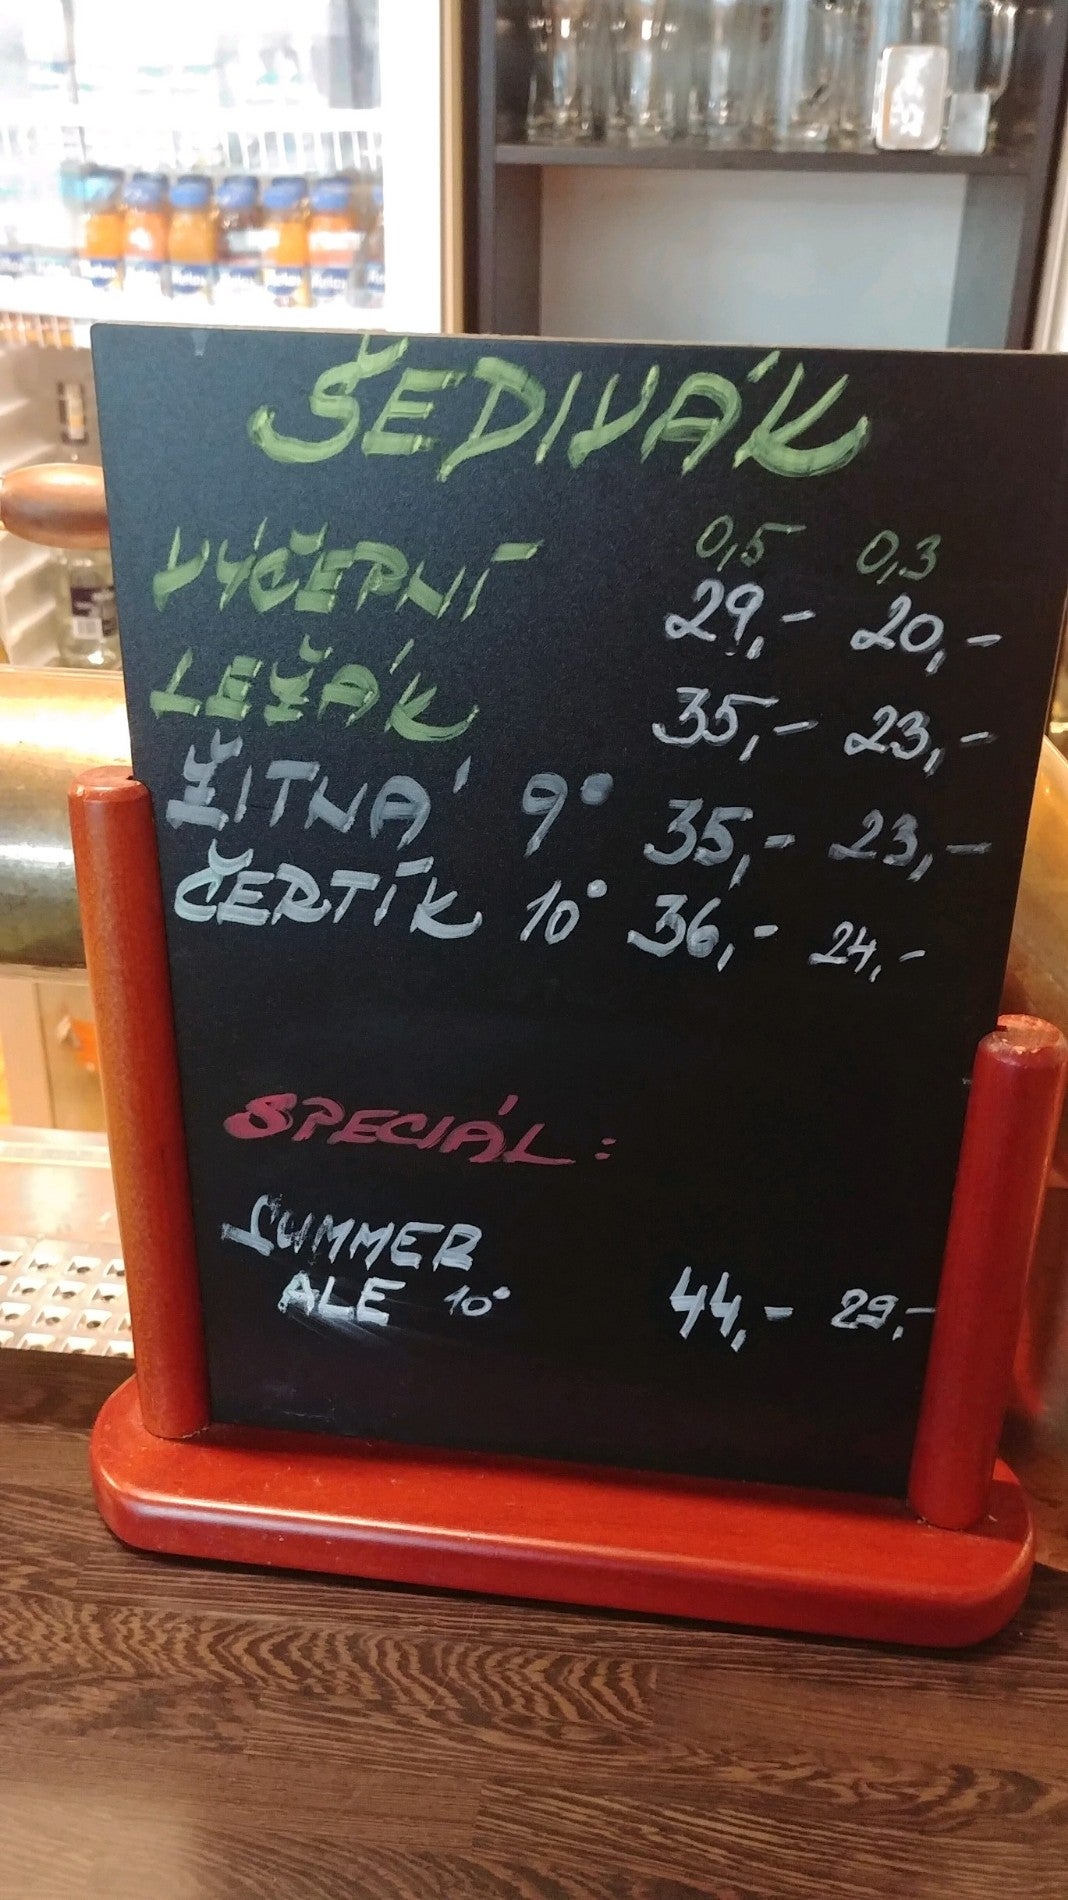 ŠEDIVÁK
0,5 0,3
VÝČEPNÍ 29,- 20,-
LEŽÁK 35,- 23,-
ŽITNÁ 9° 35,- 23,-
ČERTÍK 10° 36,- 24,-
SPECIÁL:
SUMMER
ALE 10° 44,- 29,-